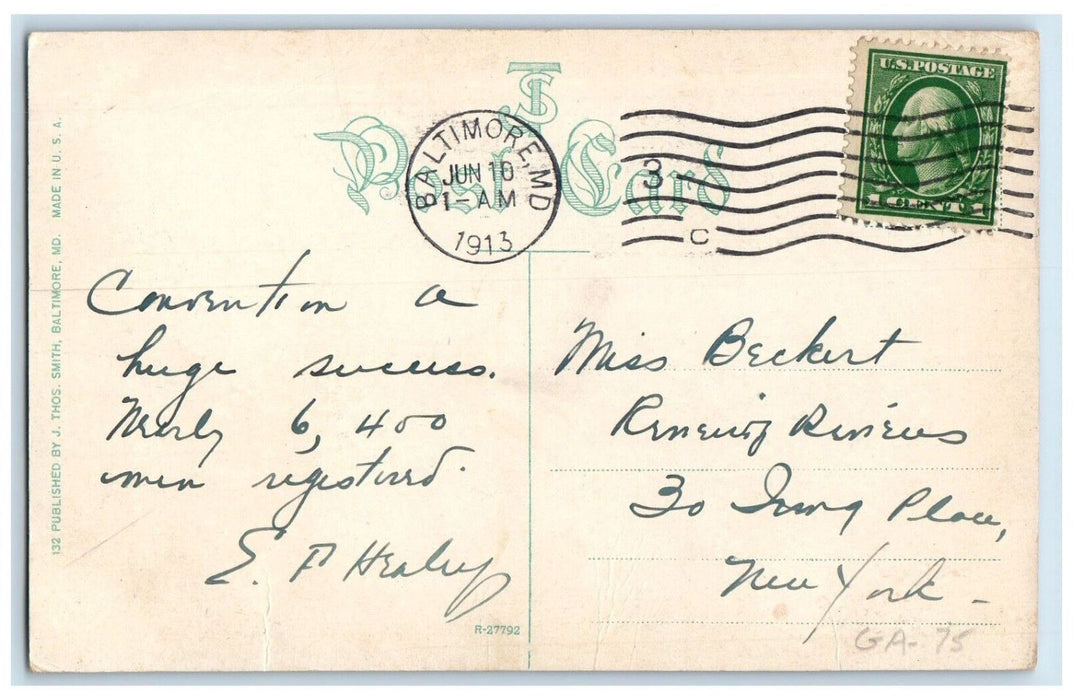 Post Card
JTS
BALTIMORE, MD
JUN 10
1-AM
1913
3
C
U.S. POSTAGE
132 PUBLISHED BY J. THOS. SMITH, BALTIMORE, MD. MADE IN U. S. A.
Convention a
huge success.
Nearly 6,400
men registered.
E. F Healey
Miss Beckert
Reviews
30 Irving Place,
New York -
R-27792
GA-75